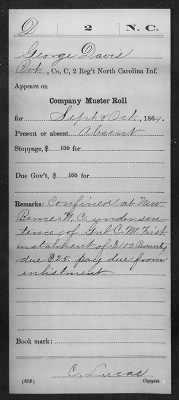 D 2 N. C.
George Davis
Pvt., Co. C, 2 Reg't North Carolina Inf.
Appears on
Company Muster Roll
for Sept & Oct, 1864.
Present or absent Absent
Stoppage, $ 100 for
Due Gov't, $ 100 for
Remarks: Confined at New
Berne N. C. under sen
tence of Genl C. M. First
instalment of $100 Bounty
due $25 pay due from
enlistment
Book mark:
C. Lucas
(358) Copyist.